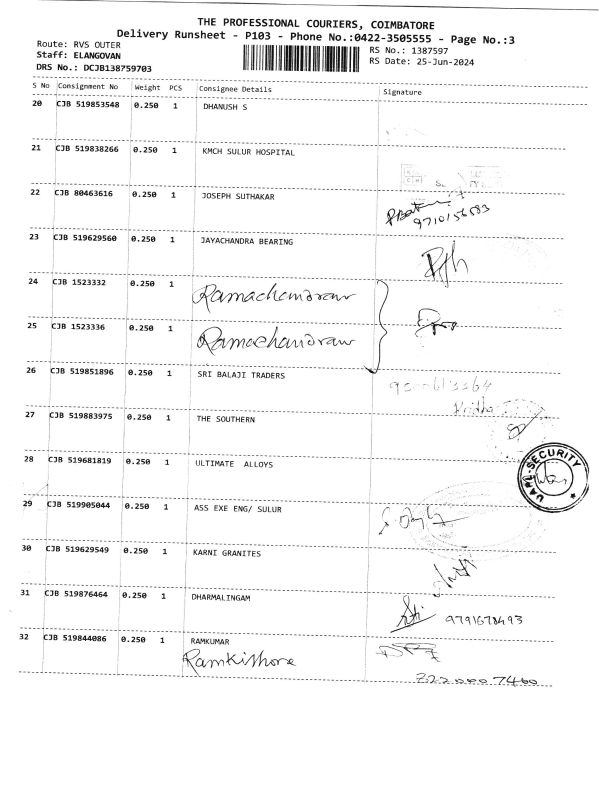 THE PROFESSIONAL COURIERS, COIMBATORE
Delivery Runsheet - P103 - Phone No.:0422-3505555 - Page No.:3
Route: RVS OUTER
Staff: ELANGOVAN
DRS No.: DCJB138759703
RS No.: 1387597
RS Date: 25-Jun-2024
S No Consignment No Weight PCS Consignee Details Signature
20 CJB 519853548 0.250 1 DHANUSH S
21 CJB 519838266 0.250 1 KMCH SULUR HOSPITAL
22 CJB 80463616 0.250 1 JOSEPH SUTHAKAR
9710156583
23 CJB 519629560 0.250 1 JAYACHANDRA BEARING
24 CJB 1523332 0.250 1 Ramachandran
25 CJB 1523336 0.250 1 Ramachandran
26 CJB 519851896 0.250 1 SRI BALAJI TRADERS
27 CJB 519883975 0.250 1 THE SOUTHERN
28 CJB 519681819 0.250 1 ULTIMATE ALLOYS
UAPL-SECURITY
29 CJB 519905044 0.250 1 ASS EXE ENG/ SULUR
30 CJB 519629549 0.250 1 KARNI GRANITES
31 CJB 519876464 0.250 1 DHARMALINGAM
9791678493
32 CJB 519844086 0.250 1 RAMKUMAR
Ramkishore